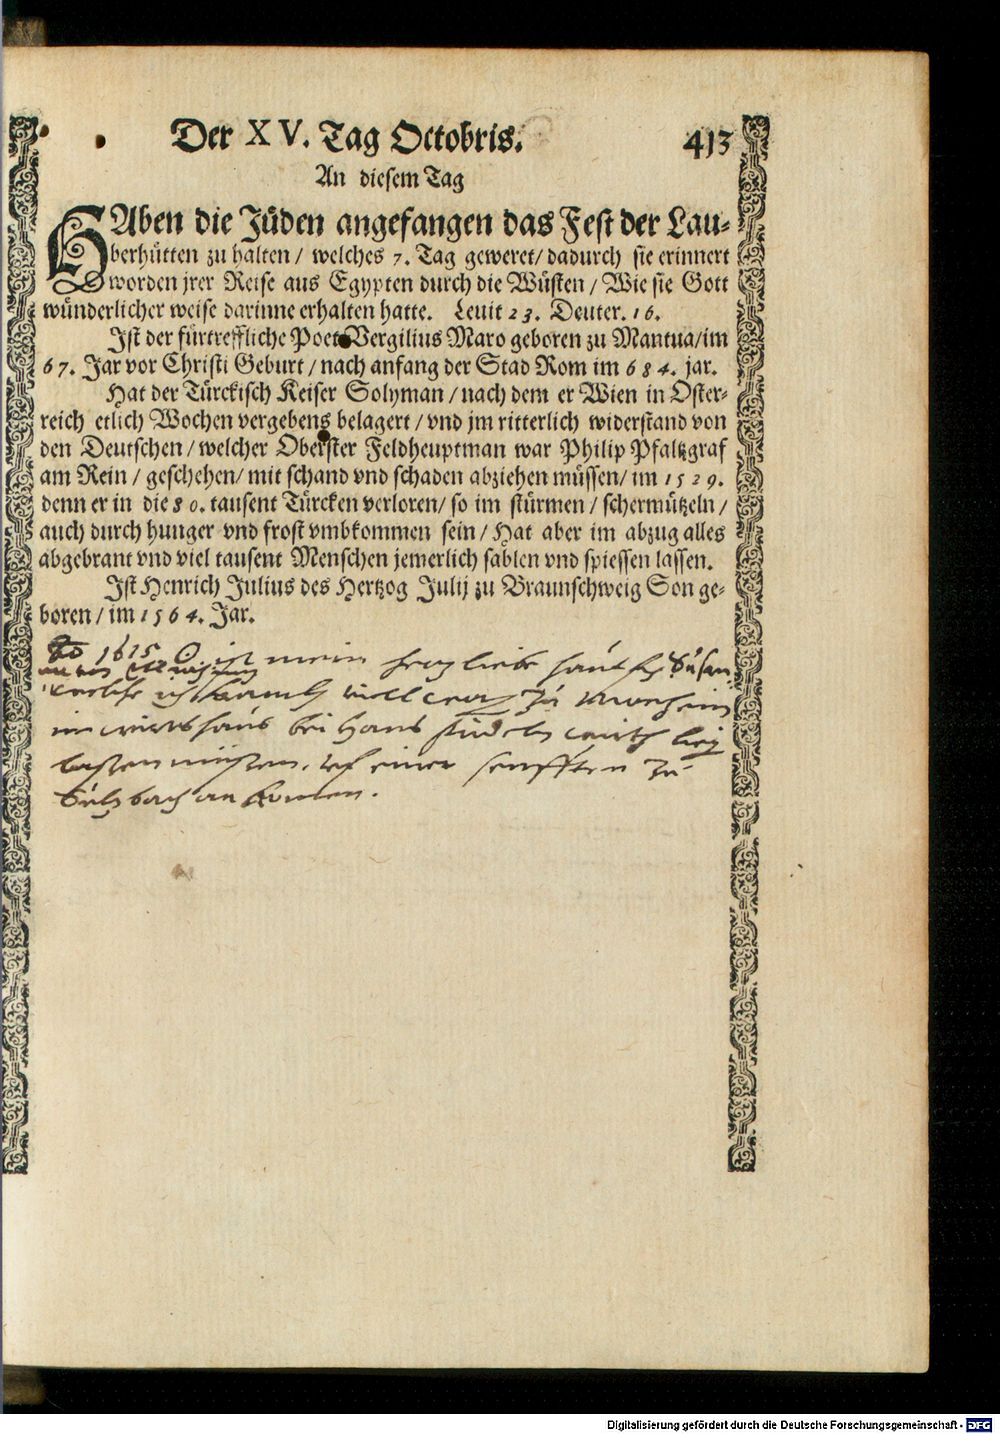 Der XV. Tag Octobris. 413
An diesem Tag
HAben die Jüden angefangen das Fest der Lau-
berhütten zu halten / welches 7. Tag geweret / dadurch sie erinnert
worden jrer Reise aus Egypten durch die Wüsten / Wie sie Gott
wünderlicher weise darinne erhalten hatte. Leuit 23. Deuter. 16.
Ist der fürtreffliche Poet Vergilius Maro geboren zu Mantua / im
67. Jar vor Christi Geburt / nach anfang der Stad Rom im 684. jar.
Hat der Türckisch Keiser Solyman / nach dem er Wien in Oster-
reich etlich Wochen vergebens belagert / vnd jm ritterlich widerstand von
den Deutschen / welcher Oberster Feldheuptman war Philip Pfaltzgraf
am Rein / geschehen / mit schand vnd schaden abziehen müssen / im 1529.
denn er in die 80. tausent Türcken verloren / so im stürmen / schermützeln /
auch durch hunger vnd frost vmbkommen sein / Hat aber im abzug alles
abgebrant vnd viel tausent Menschen jemerlich sablen vnd spiessen lassen.
Ist Henrich Julius des Hertzog Julij zu Braunschweig Son ge-
boren / im 1564. Jar.
1615 ist mein herz liebe Susan
welche ich
im wirtshaus bei Hans
lassen müssen, uf einer senfften zu
Sulzbach an komen.
Digitalisierung gefördert durch die Deutsche Forschungsgemeinschaft - DFG